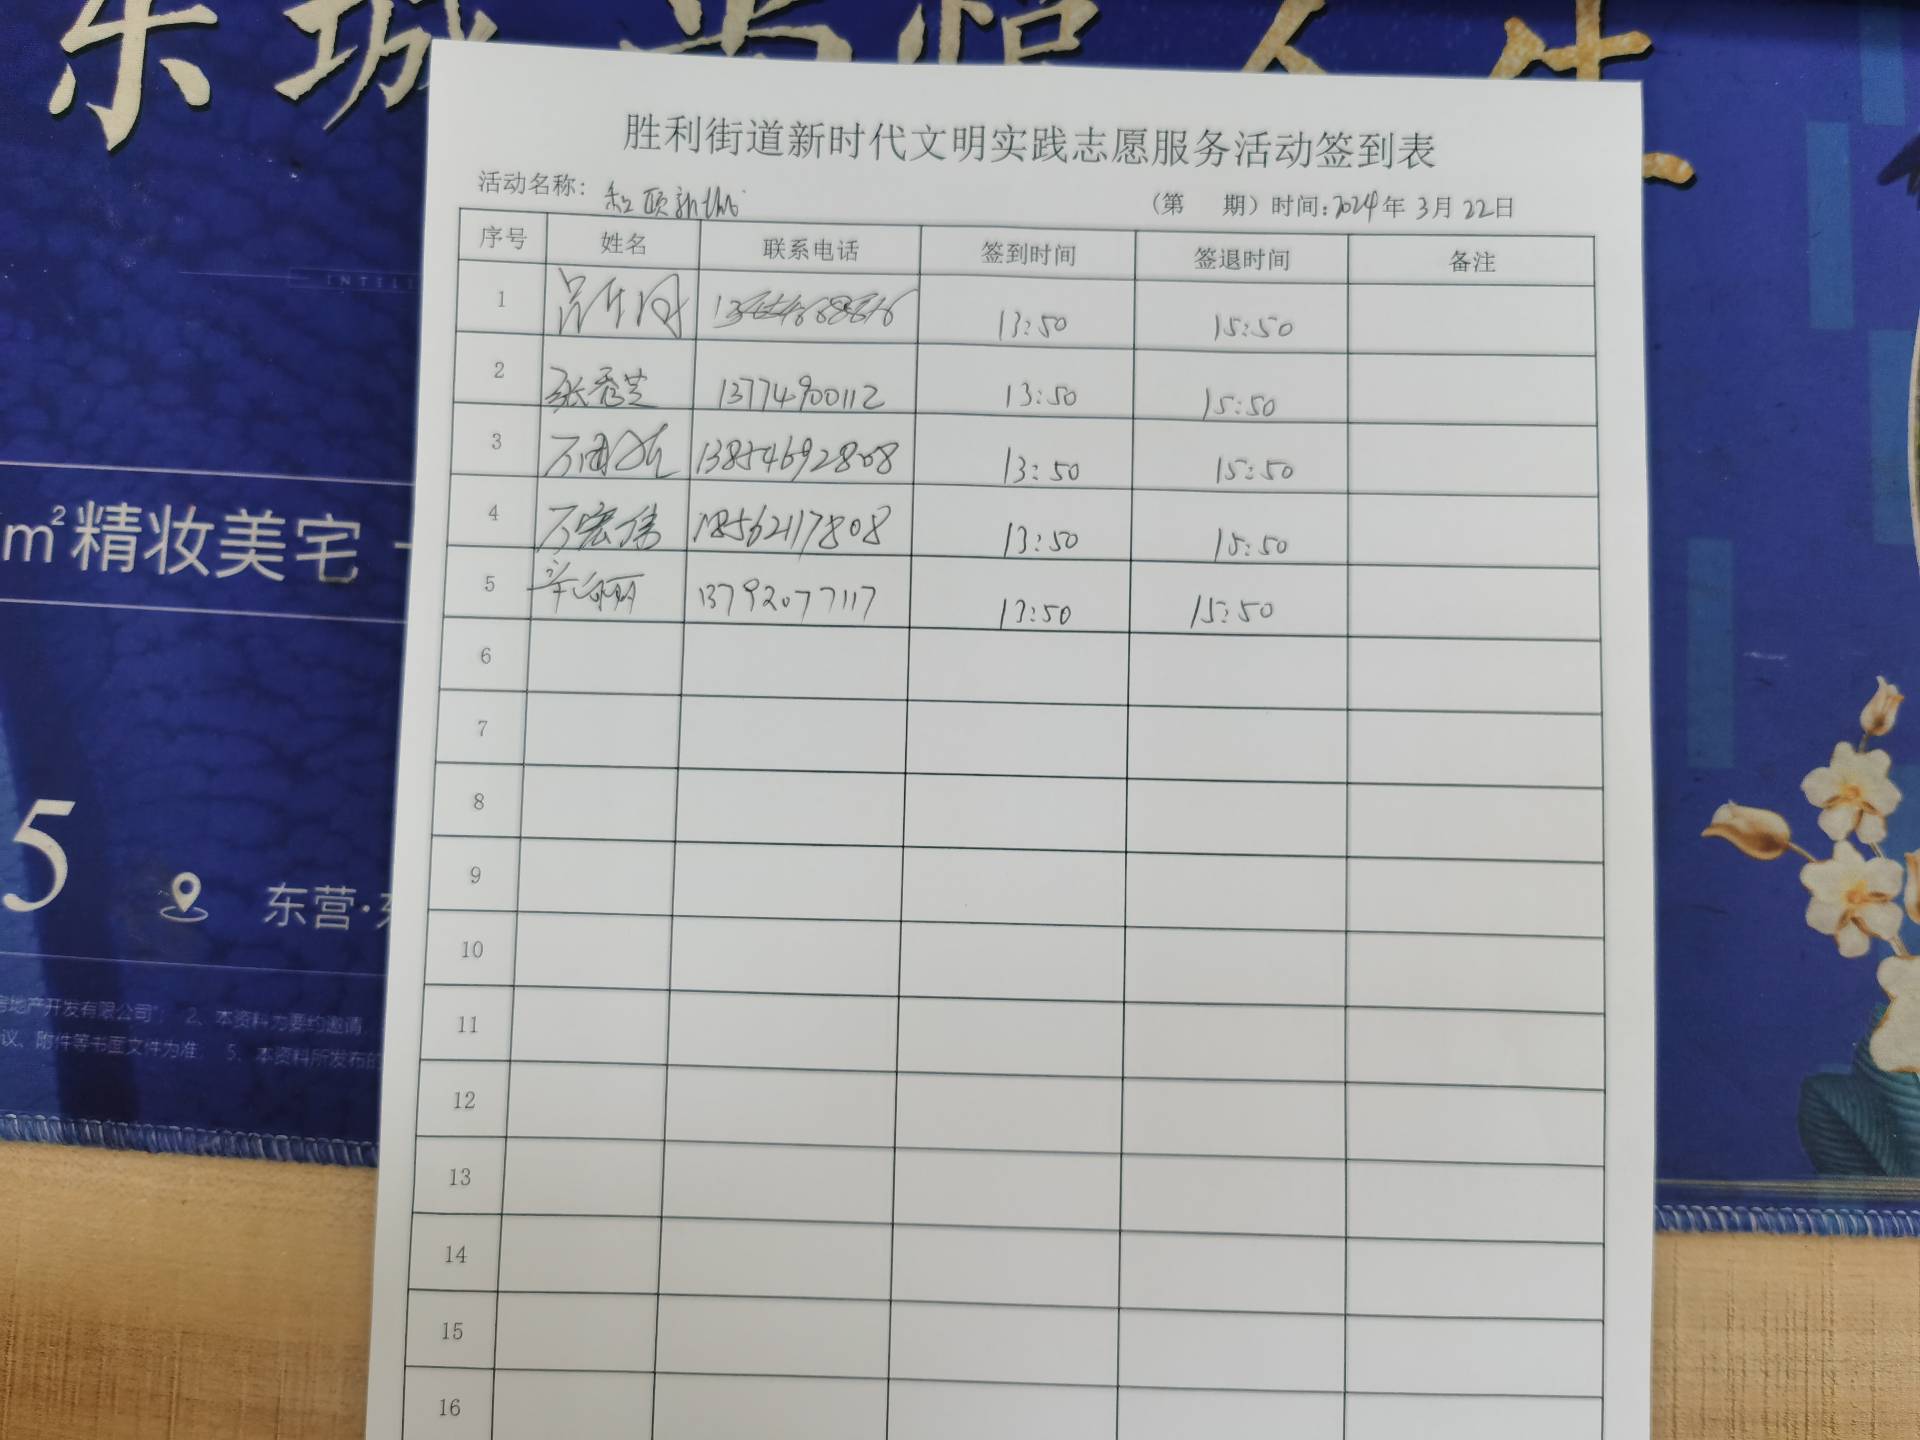 东城
人生
INTELLI
m²精妆美宅
5
东营·东
房地产开发有限公司"； 2、本资料为要约邀请，
议、附件等书面文件为准； 5、本资料所发布的
胜利街道新时代文明实践志愿服务活动签到表
活动名称：
（第 期）时间：2024年 3月 22日
序号 姓名 联系电话 签到时间 签退时间 备注
1 13:50 15:50
2 张秀芝 13774900112 13:50 15:50
3 13854692808 13:50 15:50
4 万宏伟 18562117808 13:50 15:50
5 13792077117 13:50 15:50
6
7
8
9
10
11
12
13
14
15
16